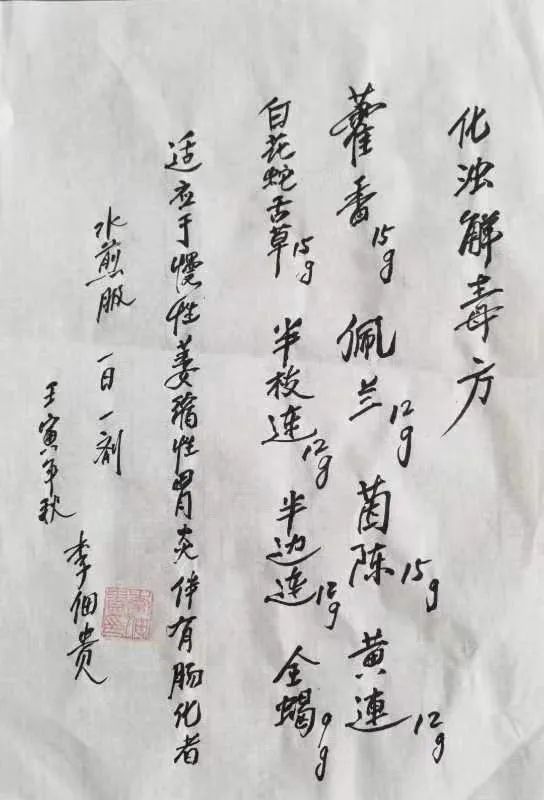 化浊解毒方
藿香15g 佩兰12g 茵陈15g 黄連12g
白花蛇舌草15g 半枝连12g 半边连12g 全蝎9g
适应于慢性萎缩性胃炎伴有肠化者
水煎服 一日一剂
壬寅年秋 李佃贵